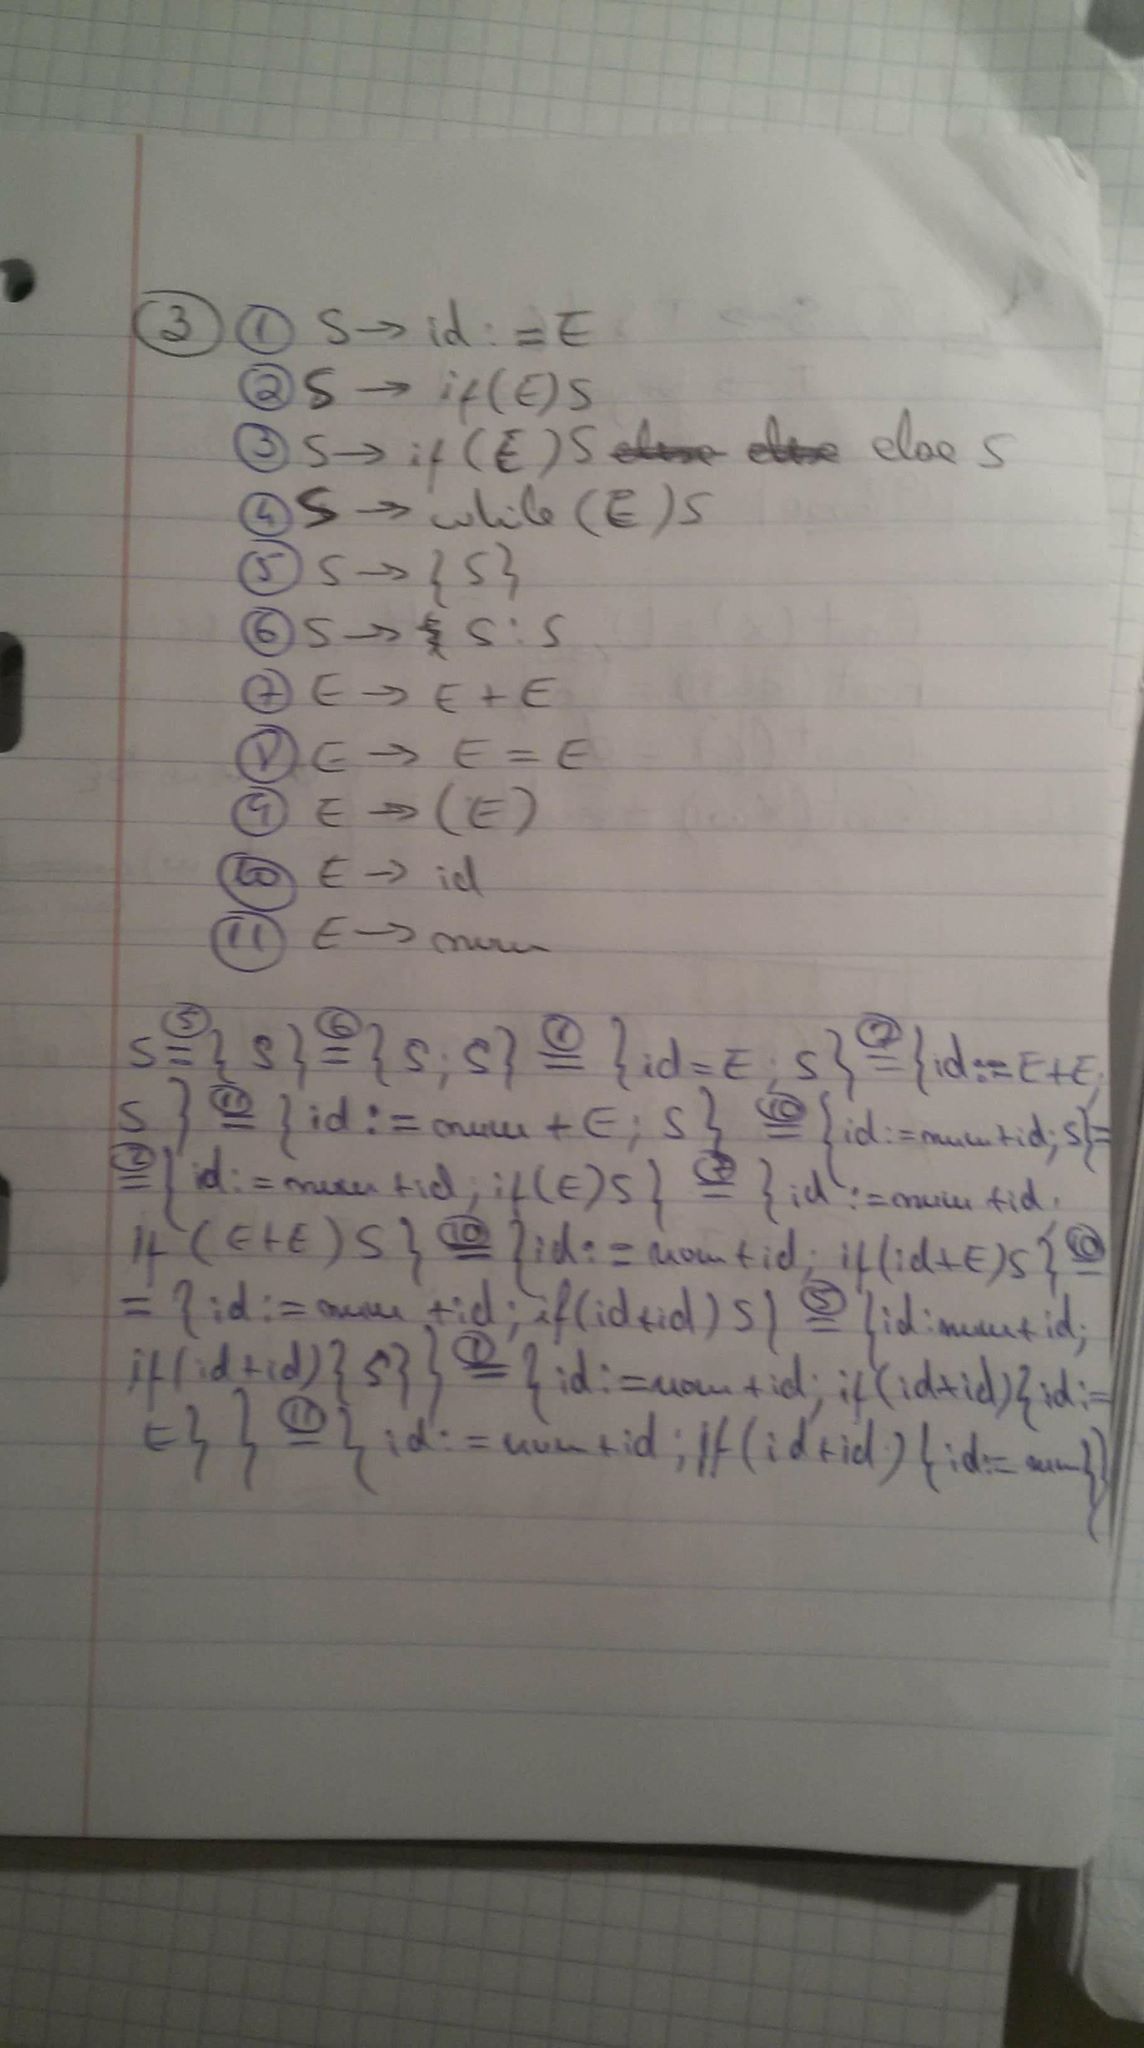 ③ ① S → id := E
② S → if(E)S
③ S → if(E)S else S
④ S → while(E)S
⑤ S → {S}
⑥ S → S:S
⑦ E → E + E
⑧ E → E = E
⑨ E → (E)
⑩ E → id
⑪ E → num
S ⑤= {S} ⑥= {S;S} ①= {id=E;S} ⑦= {id:=E+E;
S} ⑪= {id:=num+E;S} ⑩= {id:=num+id;S}=
②= {id:=num+id;if(E)S} ⑦= {id:=num+id;
if(E+E)S} ⑩= {id:=num+id;if(id+E)S} ⑩=
= {id:=num+id;if(id+id)S} ⑤= {id:num+id;
if(id+id){S}} ①= {id:=num+id;if(id+id){id:=
E}} ⑪= {id:=num+id;if(id+id){id:=num}}